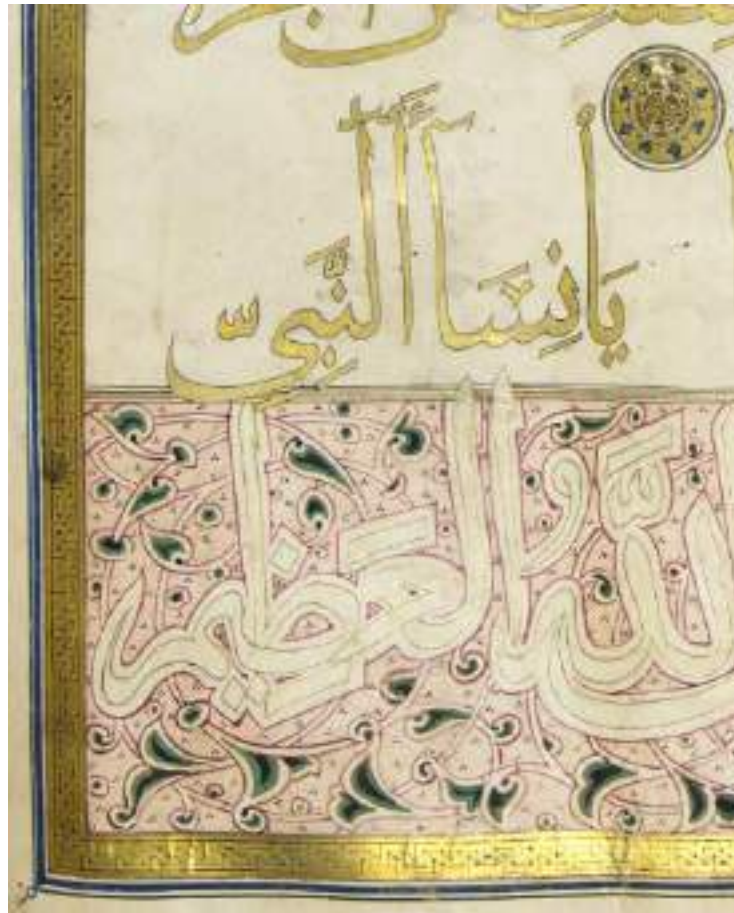 يَانِسَآ ٱلنَّبِيِّ
اللّٰهُ الْعَظِيمِ